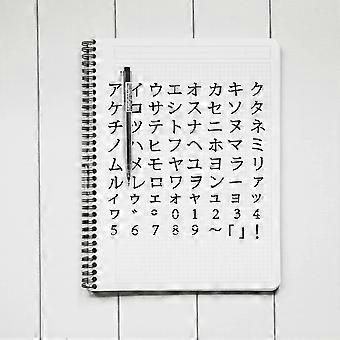 アイウエオカキク
ケコサシスセソタ
チツテトナニヌネ
ノハヒフヘホマミ
ムメモヤユヨラリ
ルレロワヲンーァ
ィゥェォャュョッ
ヮ゛゜01234
56789〜「」!